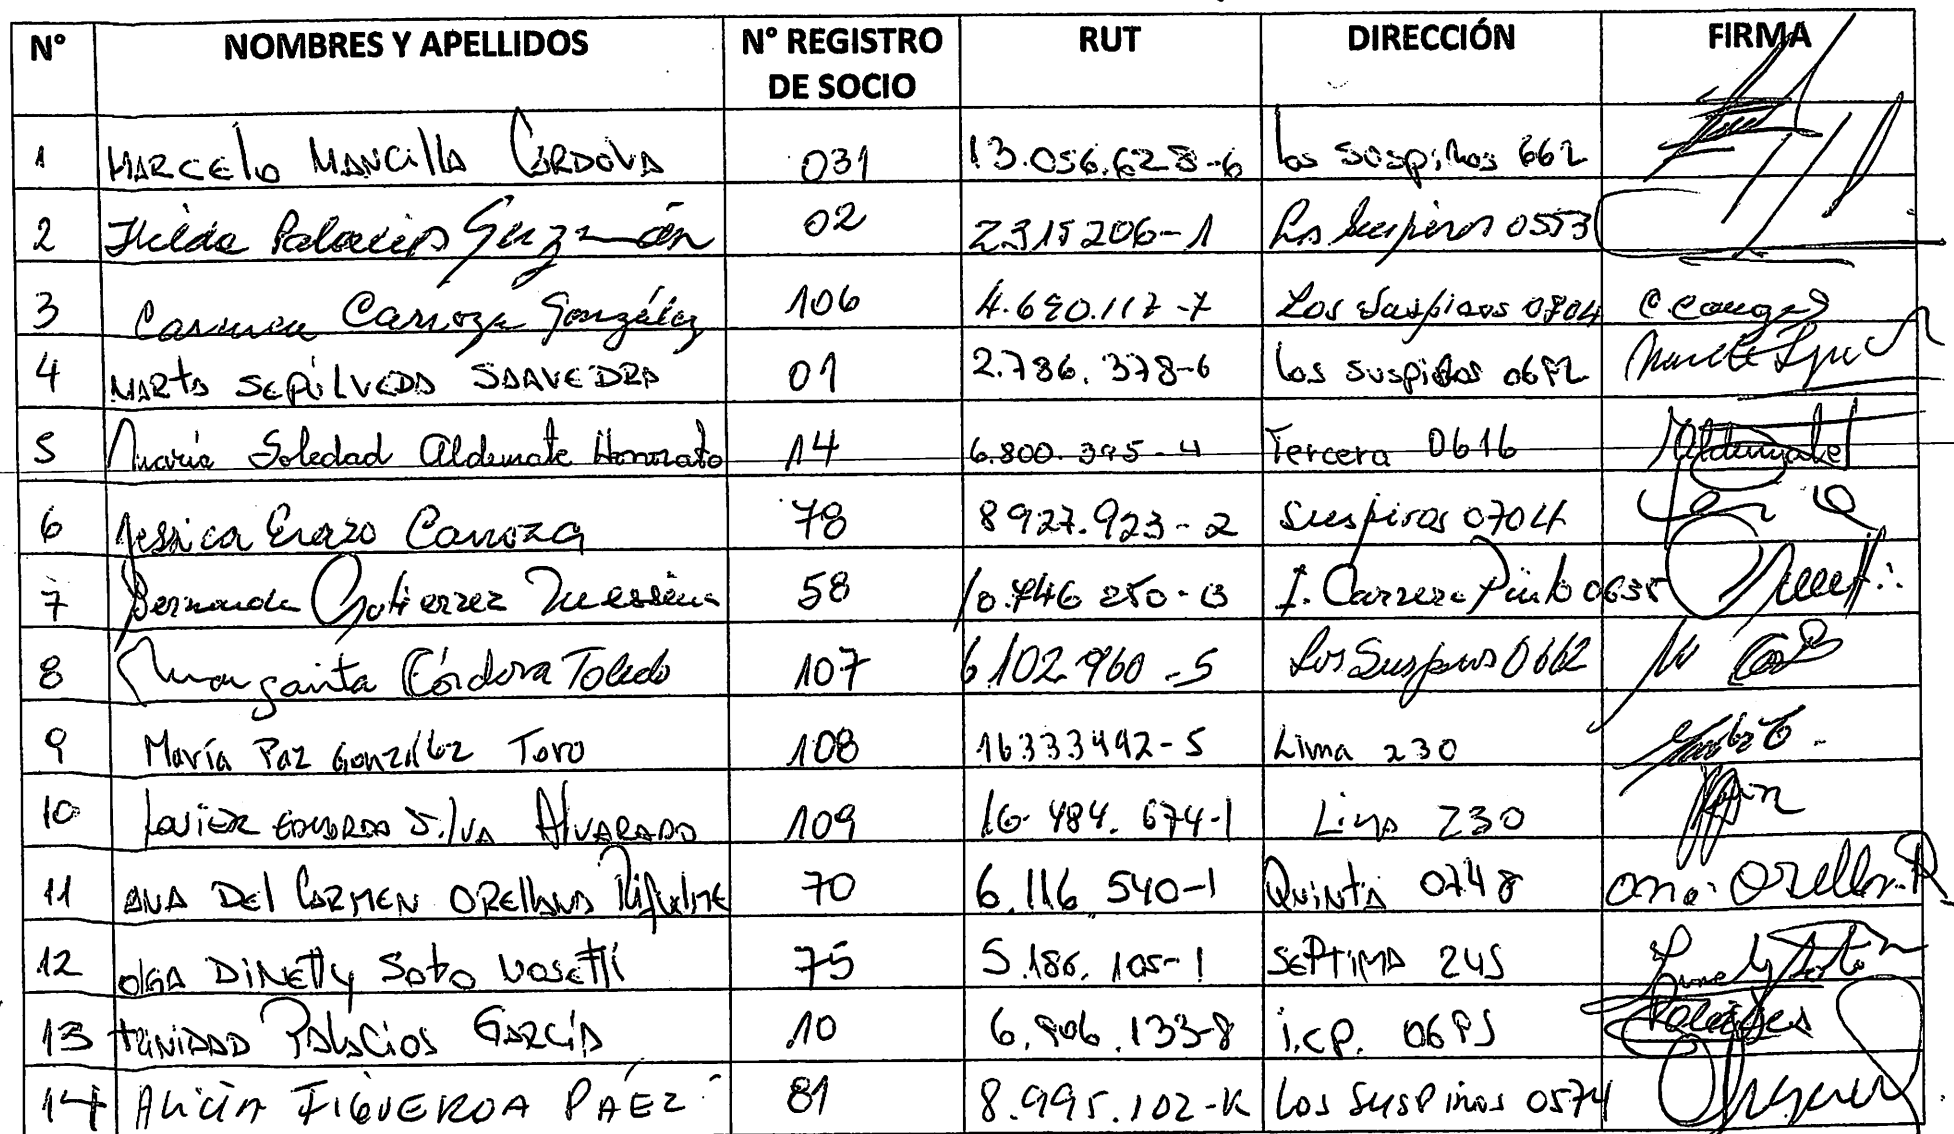 N° NOMBRES Y APELLIDOS N° REGISTRO DE SOCIO RUT DIRECCIÓN FIRMA
1 MARCELO MANCILLA CÓRDOVA 031 13.056.628-6 Los Suspiros 662
2 Hilda Palacios Guzmán 02 2315206-1 Los Suspiros 0553
3 Carmen Carroza González 106 4.690.117-7 Los Suspiros 0704
4 MARTA SEPÚLVEDA SAAVEDRA 01 2.786.378-6 Los Suspiros
5 María Soledad Aldunate Honorato 14 6.800.395-4 Tercera 0616
6 Jessica Erazo Carroza 78 8927.923-2 Suspiros 0704
7 Bernarda Gutierrez 58 I. Carrera Pinto 0635
8 Margarita Córdova Toledo 107 6.102.960-5 Los Suspiros 0662
9 María Paz González Toro 108 16333492-5 Lima 230
10 JAVIER EDUARDO SILVA ALVARADO 109 16.484.674-1 Lima 230
11 ANA DEL CARMEN ORELLANA 70 6.116 540-1 Quinta 0748 Ana Orellana R
12 OLGA DINELLY SOTO 75 5.186.105-1 SEPTIMA 245
13 TRINIDAD PALACIOS GARCÍA 10 6.906.133-8 I.C.P. Palacios
14 ALICIA FIGUEROA PÁEZ 81 8.995.102-K Los Suspiros 0574